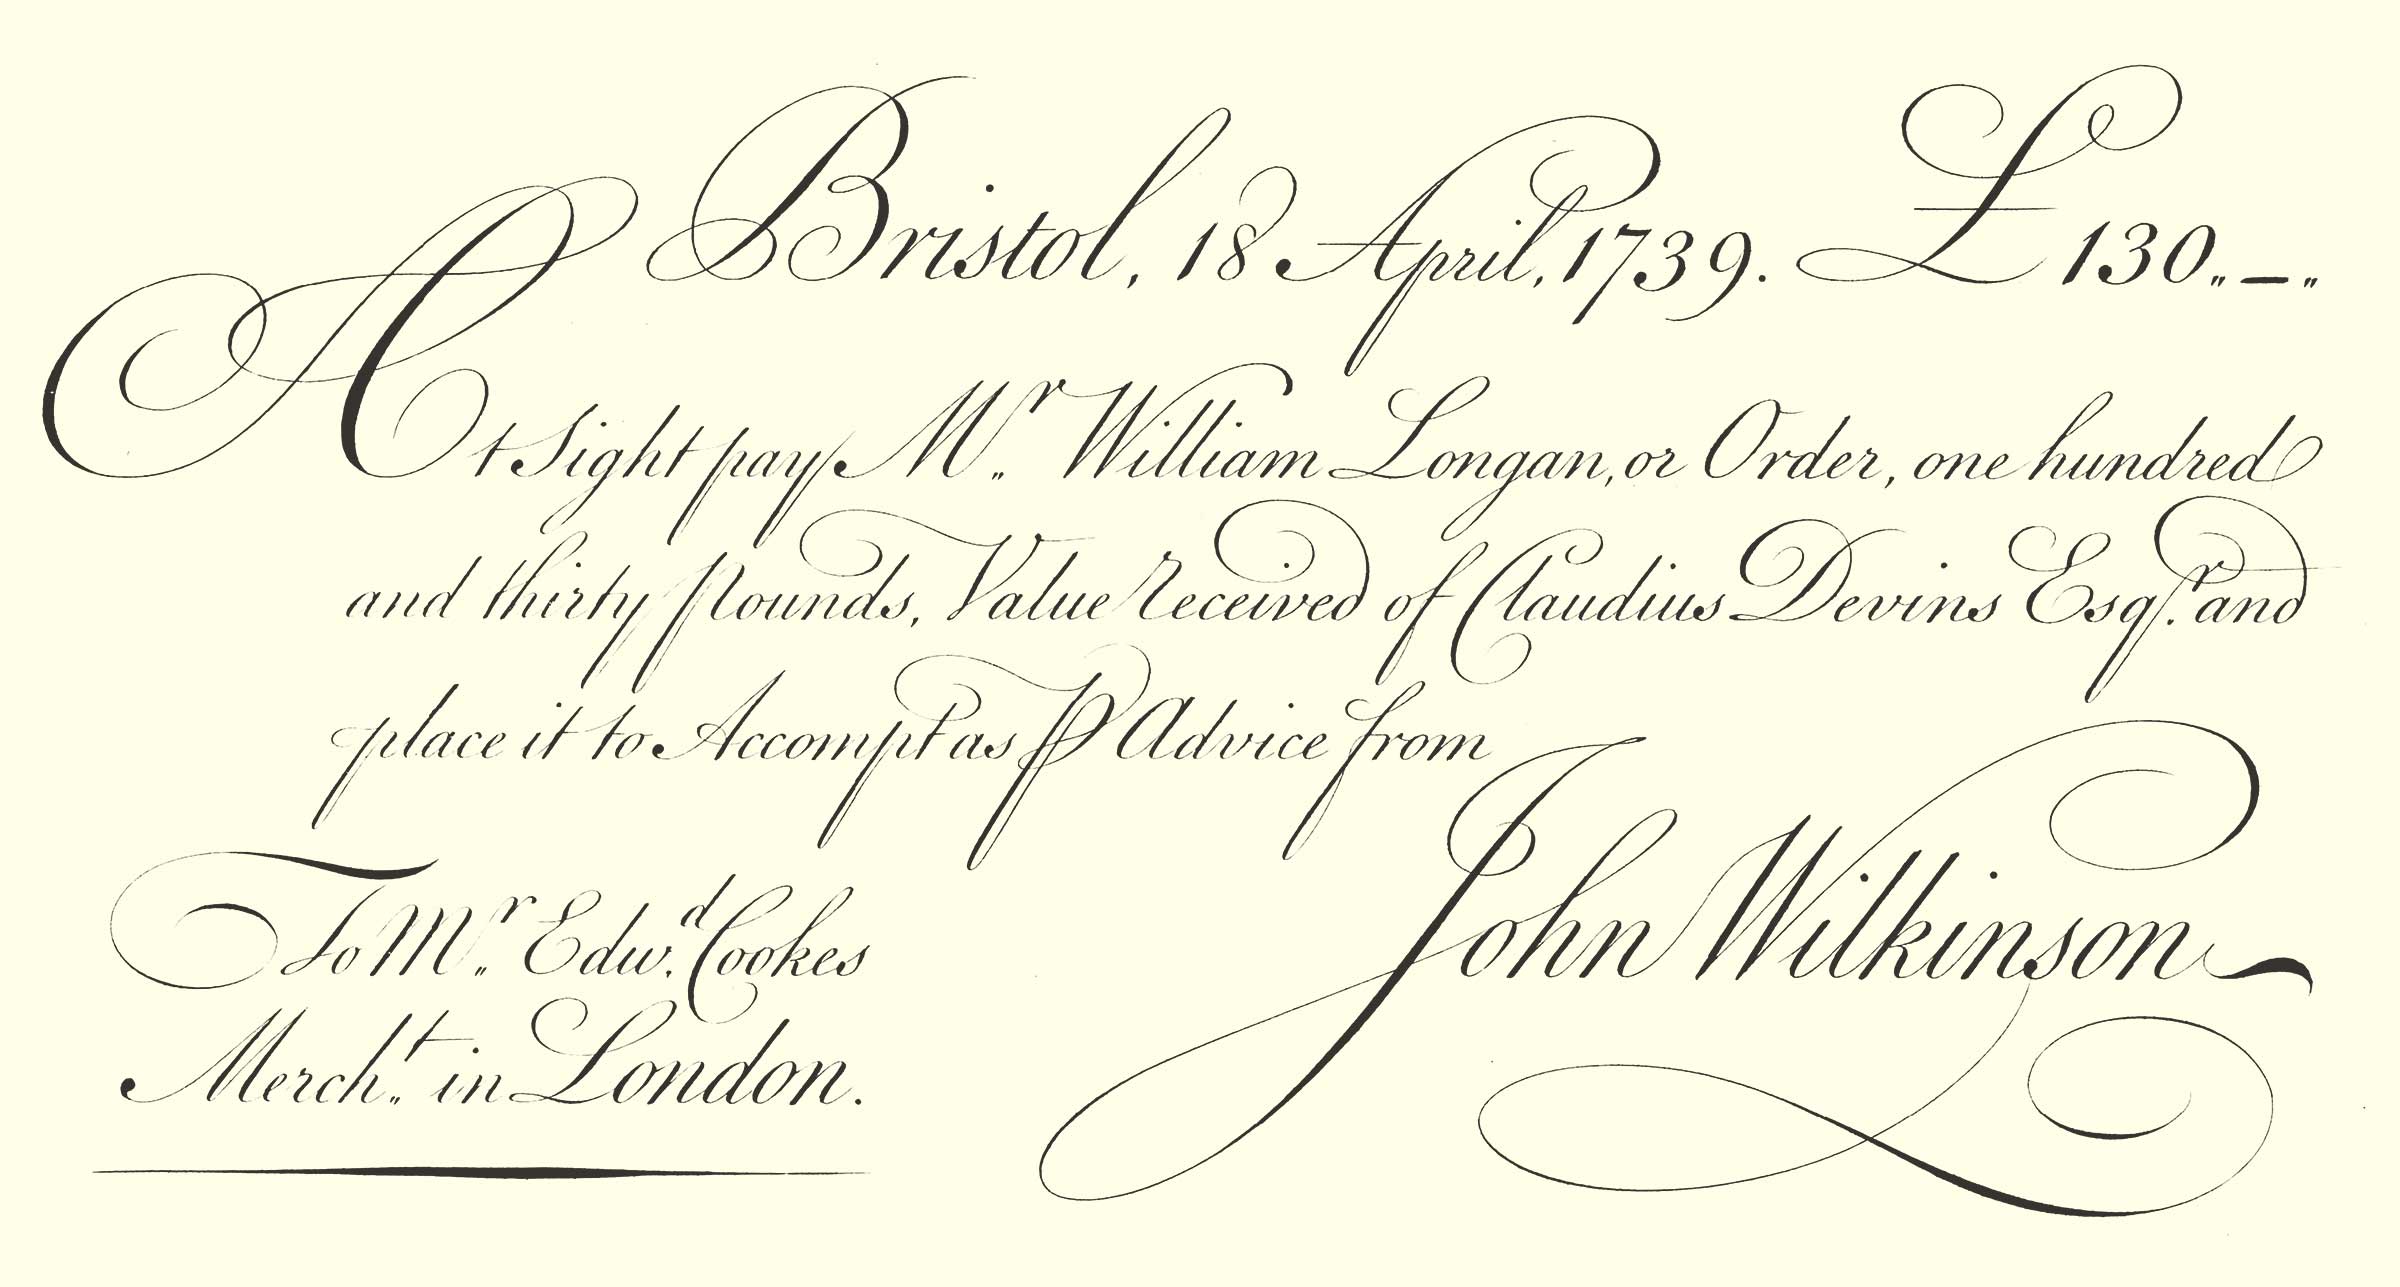 Bristol, 18 April, 1739. £ 130,, – ,,
At Sight pay Mr,, William Longan, or Order, one hundred
and thirty Pounds, Value received of Claudius Devins Esqr. and
place it to Accompt as ⅌ Advice from
John Wilkinson
To Mr,, Edwd. Cookes
Mercht,, in London.